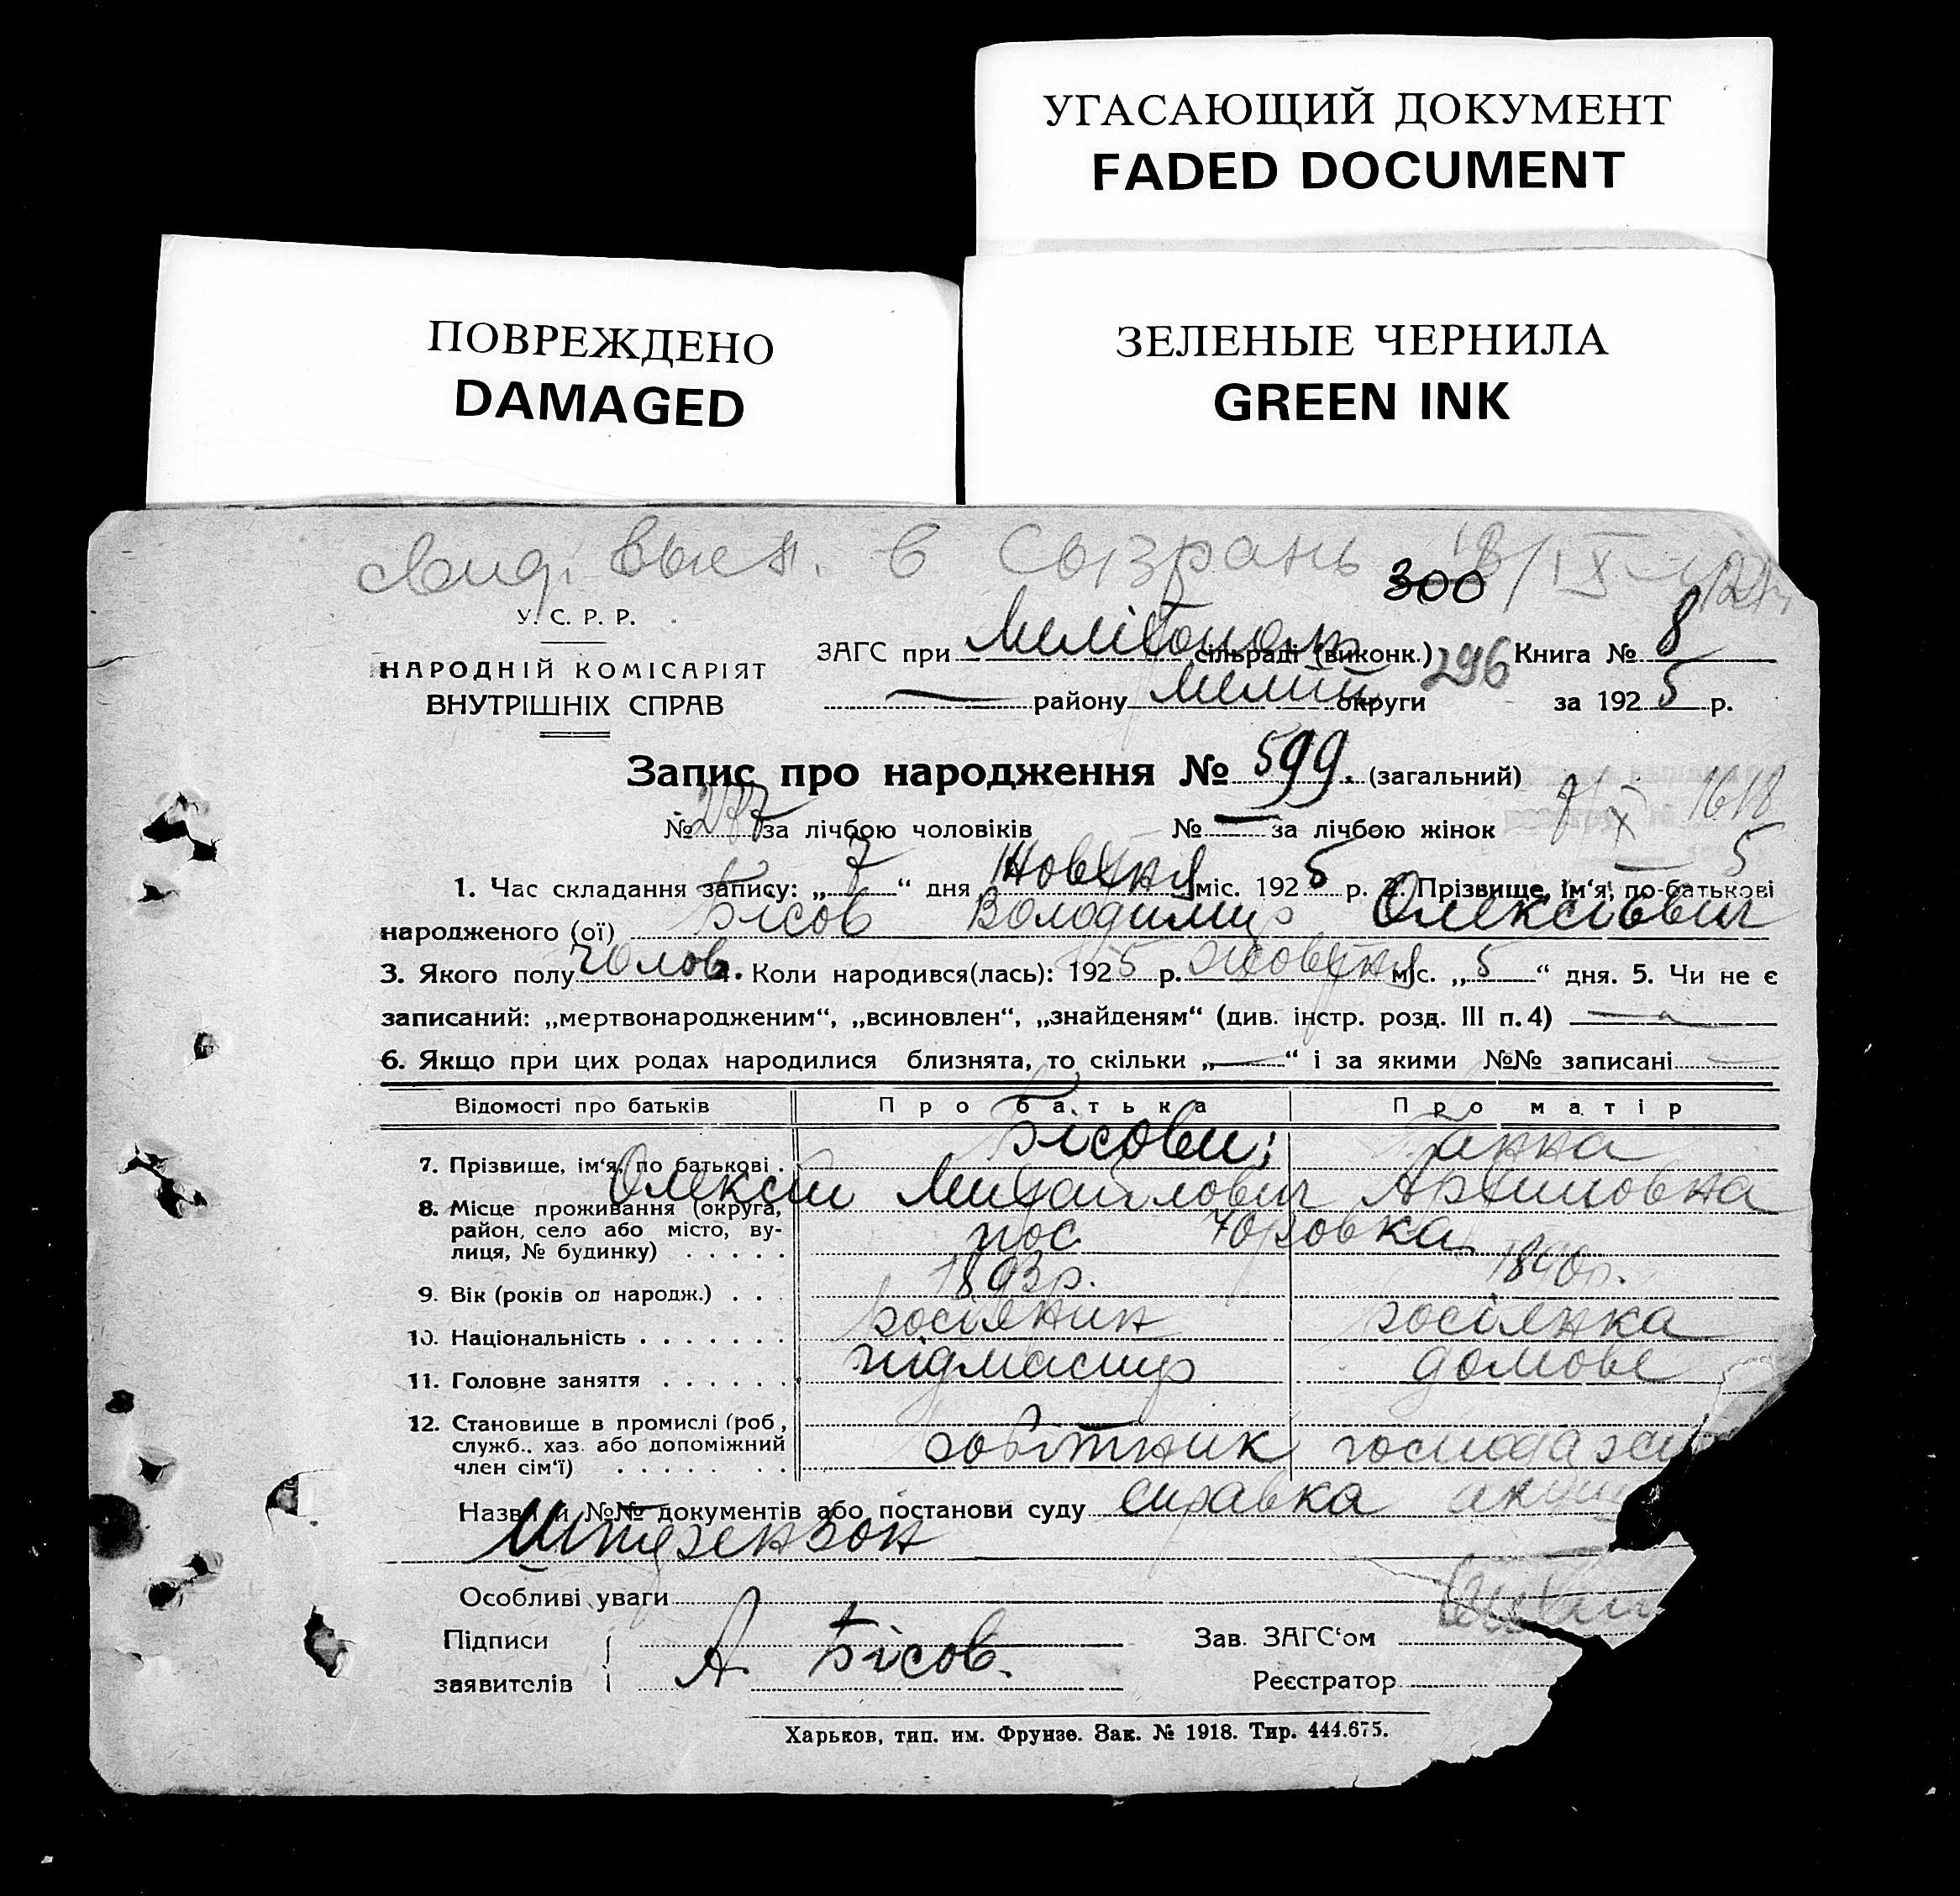 УГАСАЮЩИЙ ДОКУМЕНТ
FADED DOCUMENT
ПОВРЕЖДЕНО
DAMAGED
ЗЕЛЕНЫЕ ЧЕРНИЛА
GREEN INK
в Сызрань 18/IX
300
У. С. Р. Р.
НАРОДНІЙ КОМІСАРІЯТ
ВНУТРІШНІХ СПРАВ
ЗАГС при сільраді (виконк.) 296 Книга № 8
— району Меліт округи за 1925 р.
Запис про народження № 599. (загальний)
№ 277 за лічбою чоловіків № — за лічбою жінок
1. Час складання запису: „7“ дня Жовтня міс. 1925 р. 2. Прізвище, ім'я, по-батькові
народженого (ої) Бісов Володимир Олексієвич
3. Якого полу чолов. 4. Коли народився(лась): 1925 р. жовтня міс. „5“ дня. 5. Чи не є
записаний: „мертвонародженим“, „всиновлен“, „знайденям“ (див. інстр. розд. III п. 4) —
6. Якщо при цих родах народилися близнята, то скільки „—“ і за якими №№ записані —
Відомості про батьків Про батька Про матір
7. Прізвище, ім'я, по батькові . Бісови; Ганна
Олексій Михайлович Артимовна
8. Місце проживання (округа,
район, село або місто, ву-
лиця, № будинку) . . . . . пос Юровка
9. Вік (років од народж.) . . . 1893 р. 1890 р.
10. Національність . . . . . . . росіянин росіянка
11. Головне заняття . . . . . . підмастир домове
12. Становище в промислі (роб.,
служб., хаз. або допоміжний
член сім'ї) . . . . . . . . робітник
Назви й №№ документів або постанови суду справка
Штерензон
Особливі уваги
Підписи
заявителів А Бісов.
Зав. ЗАГС'ом
Реєстратор
Харьков, тип. им. Фрунзе. Зак. № 1918. Тир. 444.675.